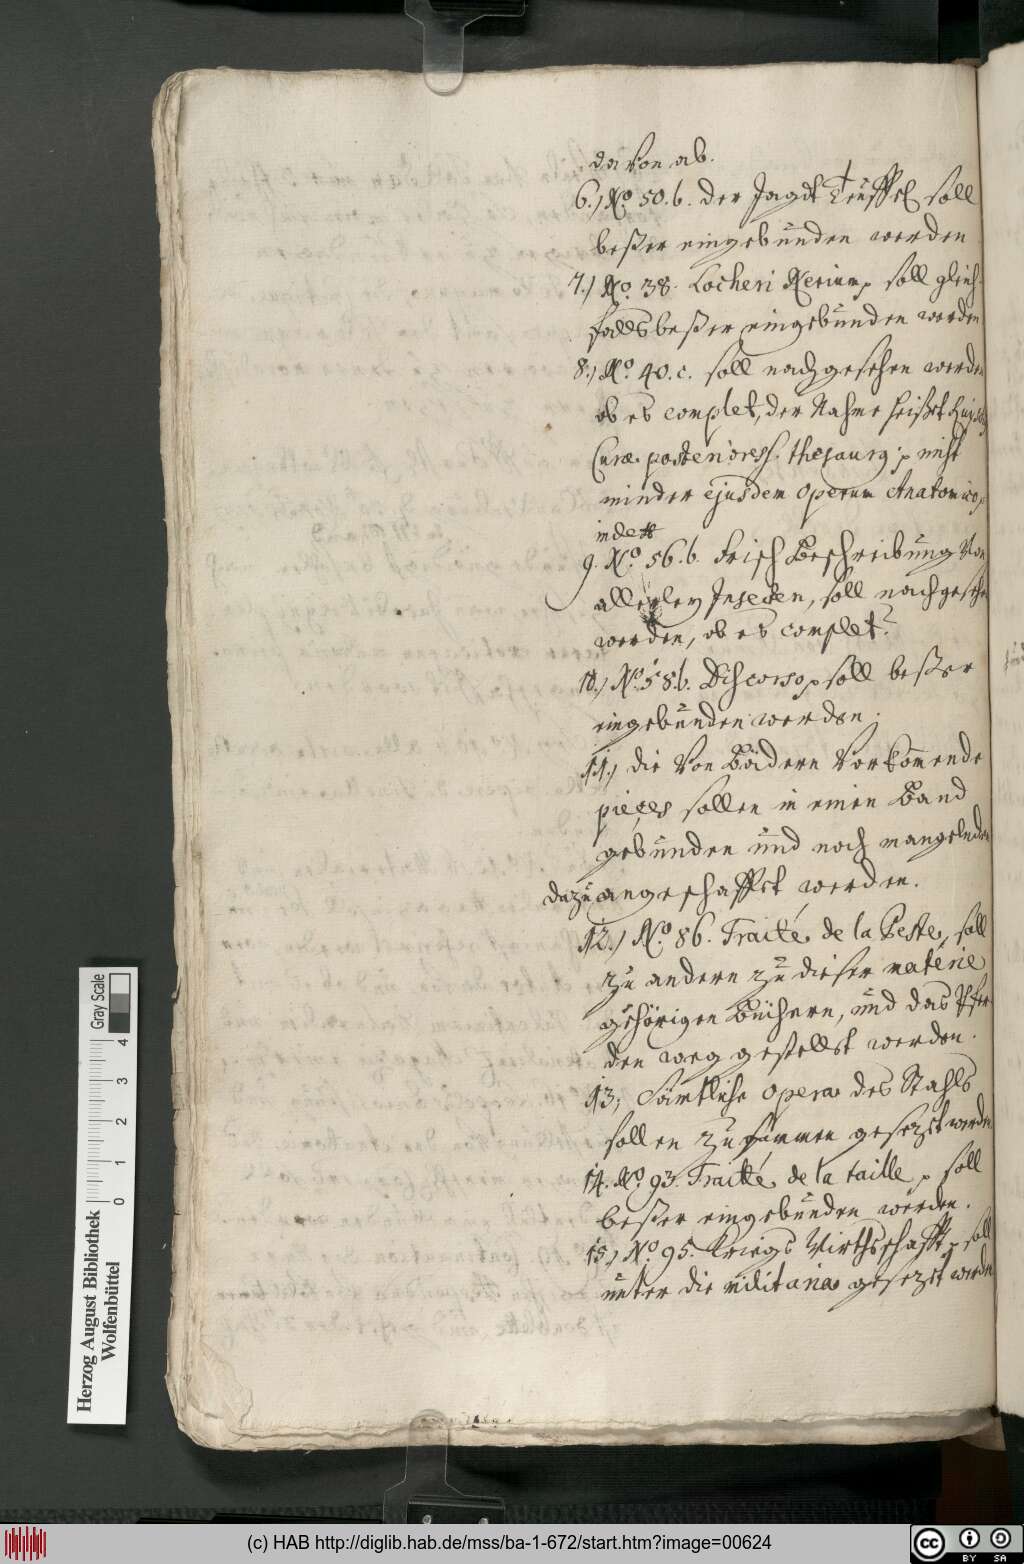 davon ab.
6.) No. 50. b. der Jagdt Teuffel soll
beßer eingebunden werden
7.) No. 38. Locheri Nerium soll gleich-
falls beßer eingebunden werden
8.) No. 40. c. soll nachgesehen werden
ob es complet, der Nahme heißet
Curæ poster thesaurg nicht
minder ejusdem operum Anatomico
index
9. No. 56. b. Frisch Beschreibung Von
allerley Insecten, soll nachgesehen
werden, ob es complet?
10.) No. 58. b. Discorso soll beßer
eingebunden werden.
11.) die Von Bädern Vorkom̄ende
pieçes sollen in einen Band
gebunden und noch mangelnden
dazu angeschaffet werden.
12.) No. 86. Traité de la Peste, soll
zu andern zu dieser materie
gehörigen Büchern, und das Pfer-
den weg gestellet werden.
13; Sämtliche opera des Stahls
sollen zusammen gesezet werden
14. No. 93. Traitté de la taille, soll
beßer eingebunden werden.
15.) No. 95. Kriegs Wirthschafft soll
unter die militaria gesezet werden
Herzog August Bibliothek
Wolfenbüttel
0 1 2 3 4
Gray Scale
(c) HAB http://diglib.hab.de/mss/ba-1-672/start.htm?image=00624
cc BY SA